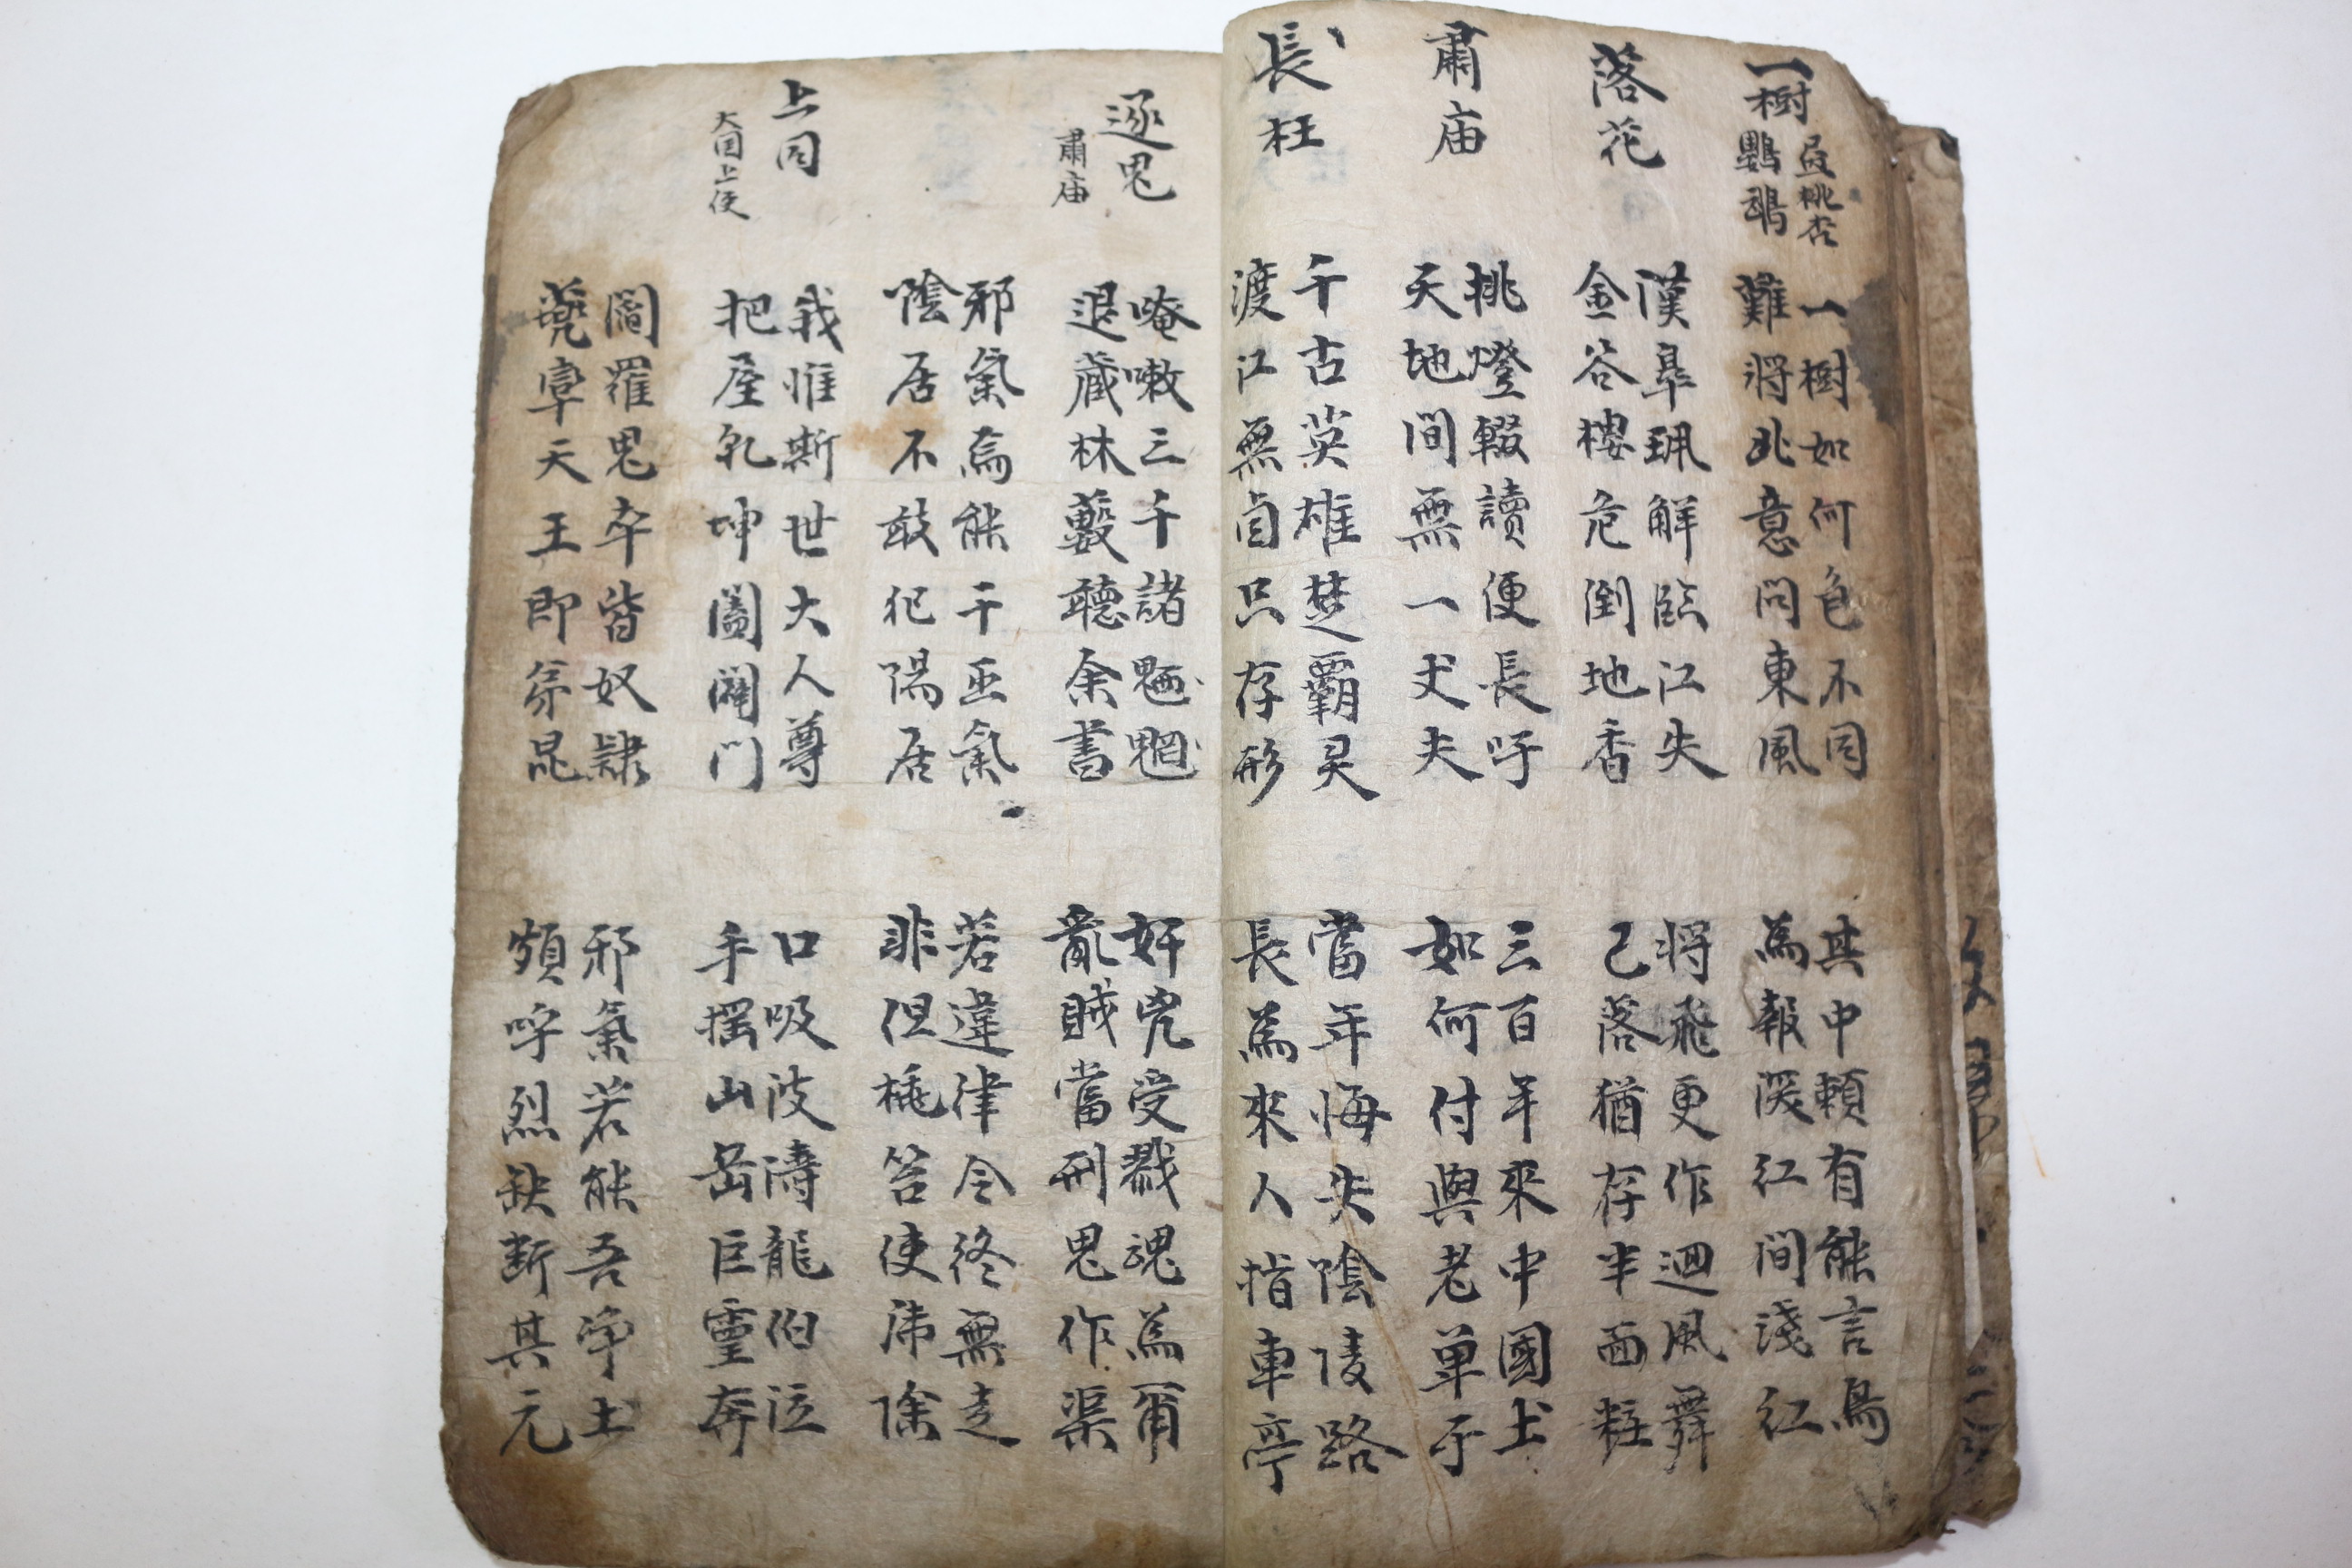 一樹
盈桃杏
鸚鵡
一樹如何色不同
難將此意問東風
其中賴有能言鳥
爲報深紅間淺紅
落花
漢皐珮解臨江失
金谷樓危倒地香
將飛更作迴風舞
已落猶存半面粧
肅庙
挑燈輟讀便長吁
天地間無一丈夫
三百年來中國土
如何付與老单于
長枉
千古英雄楚覇灵
渡江無面只存形
當年悔失陰陵路
長爲來人指車亭
逐鬼
肅庙
唵嗽三千諸魎魍
退藏林藪聽余書
奸兇受戮魂爲甭
亂賊當刑鬼作渠
邪氣焉能干正氣
陰居不敢犯陽居
若違律令終無走
非但笞使沛除
上同
大国上使
我惟斯世大人尊
把屋乾坤闔闢门
口吸波濤龍伯泣
手摇山岳巨靈奔
閻羅鬼卒皆奴隷
宰天王即弟昆
邪氣若能吾净土
頞呼烈缺断其元